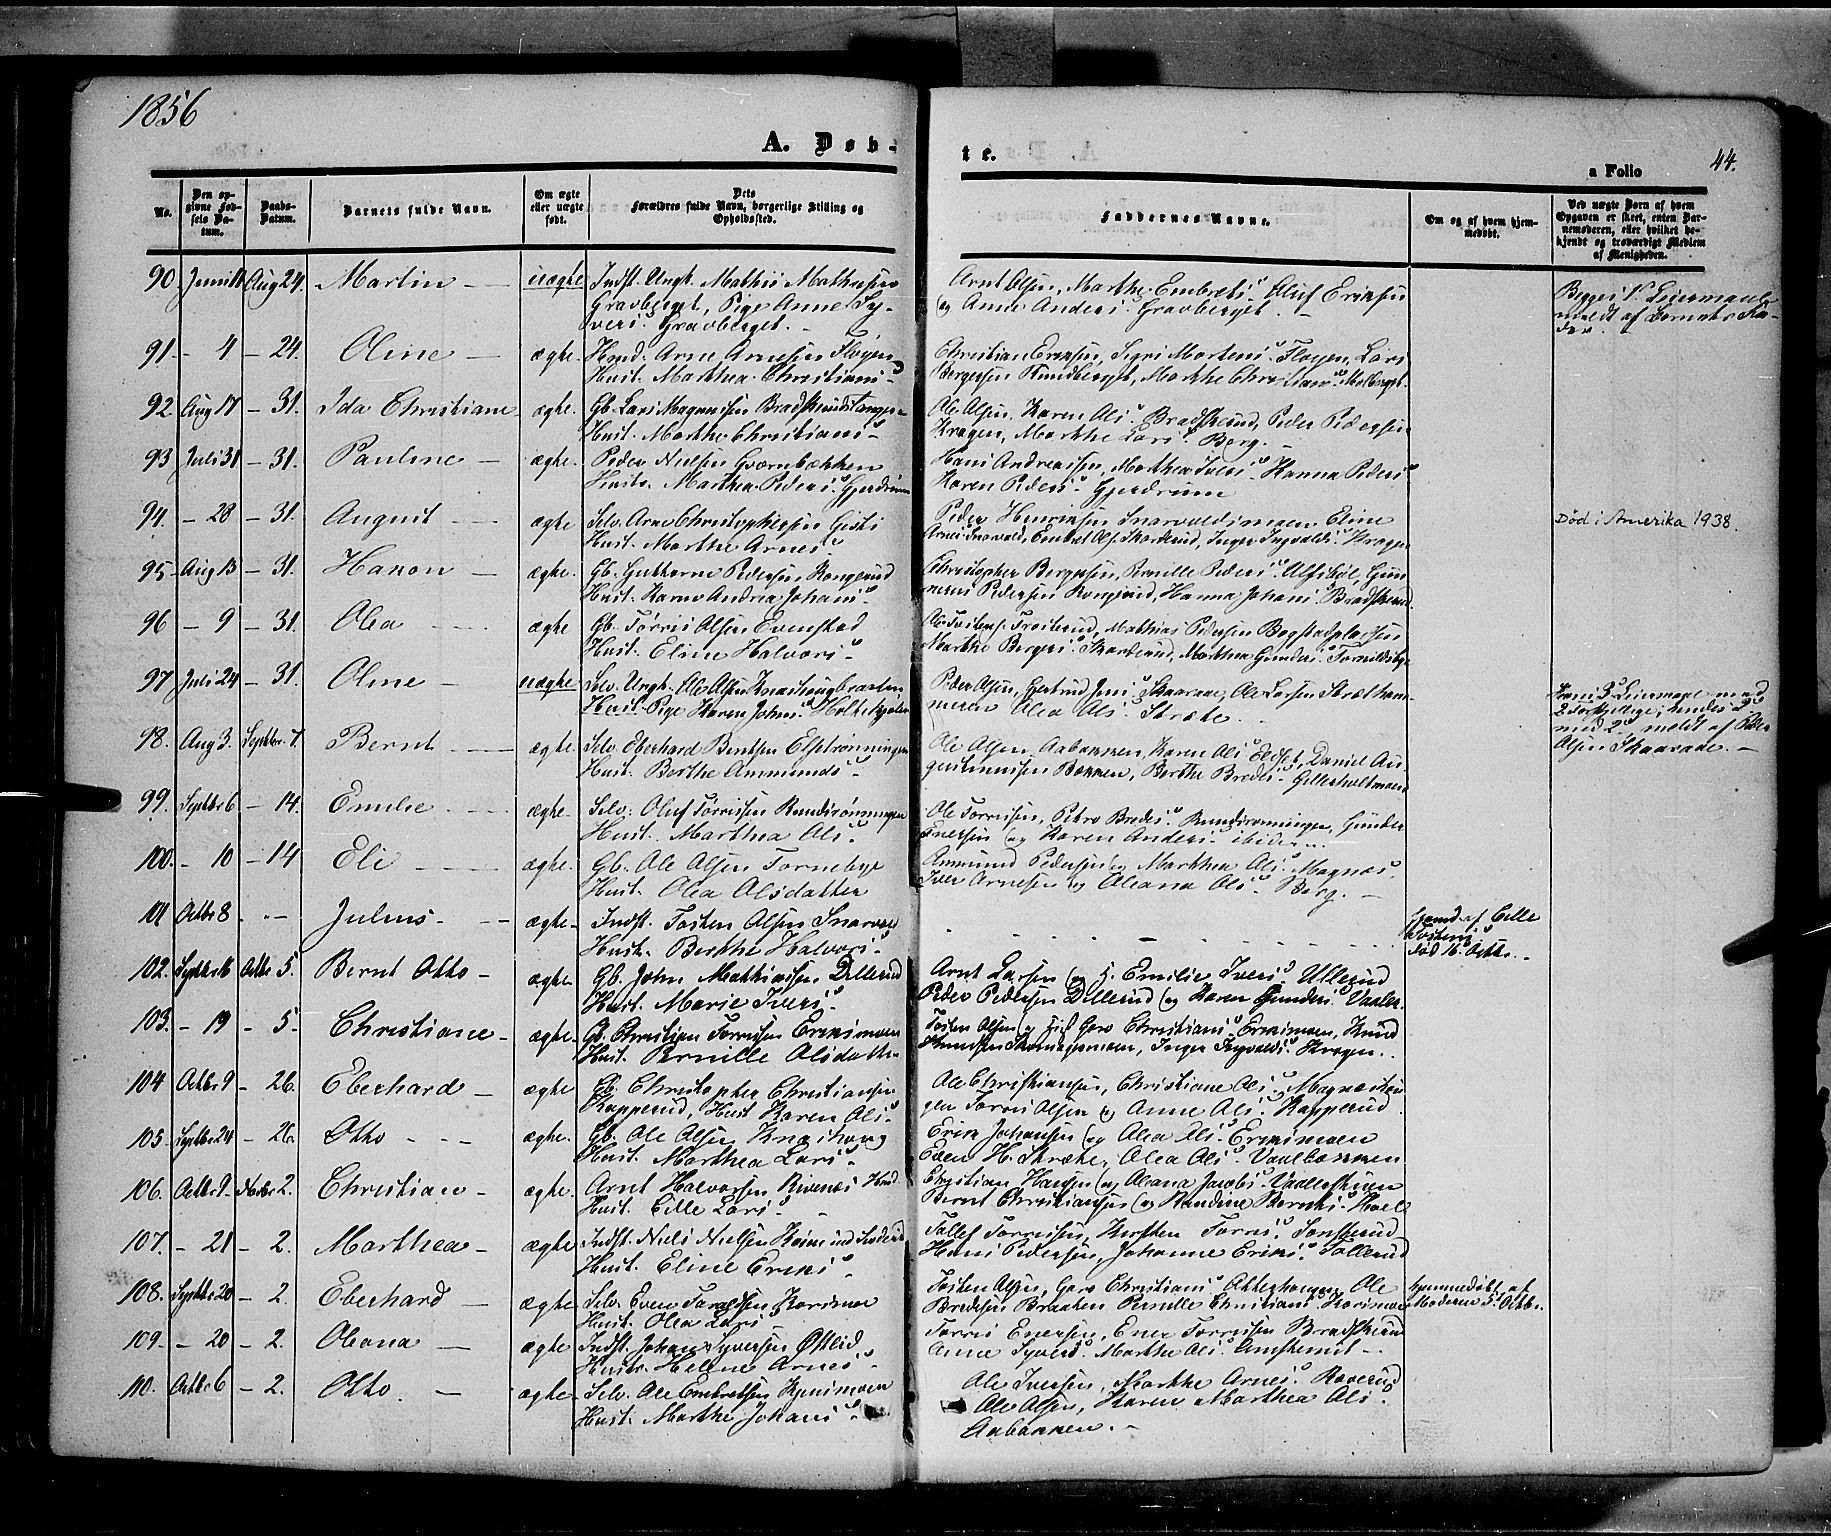 1856
A. Døb-
te.
44.
a Folio
No.
Den op-
givne Fød-
sels Da-
tum.
Daabs-
Datum.
Barnets fulde Navn.
Om ægte
eller uægte
født.
Dets
Forældres fulde Navn, borgerlige Stilling og
Opholdssted.
Faddernes Navne.
Om og af hvem hjem-
medøbt.
Ved uægte Børn af hvem
Opgaven er skeet, enten Bar-
nemoderen, eller hvilket be-
kjendt og troværdigt Medlem
af Menigheden.
90. Juni 14 Aug 24. Martin uægte Indst. Ungk. Mathis Mathisen
Gravberget, Pige Anne Sy-
vers. Gravberget.
Arnt Olsen, Marthe Embrets. Oluf Eriksen
og Anne Anders. Gravberget.
Begges 1ste Leiermaal
meldt af Barnets Fa-
der.
91. - 4 - 24. Oline ægte. Hmd. Arne Arnesen Fløgen
Hust. Marthea Christians.
Christian Eriksen, Sigri Mortens. Fløgen, Lars
Bergersen Rundberget, Marthe Christians. Molberget.
92. Aug 17 - 31. Ida Christiane ægte. Gb. Lars Magnusen Bradskerudstangen
Hust. Marthe Christians.
Ole Olsen, Karen Ols. Bradskerud, Peder Pedersen
Kragen, Marthe Lars. Berg.
93 Juli 31 - 31. Pauline ægte. Peder Nielsen Gvernbækken
Hustr. Marthea Peders. Gjerdrum
Hans Andreassen, Marthea Ivers. Hanna Peders
Karen Peders. Gjerdrum
94. - 28 - 31. August ægte Selv. Arne Christophersen Gisti
Hust. Marthe Arnes.
Peder Henriksen Snarvoldsmoen Eline
Arnes. Snarvold, Embret Ols. Skarderud, Inger Ingvalds. Kragen
Død i Amerika 1938.
95. Aug 13 - 31. Hakon ægte. Gb. Guttorm Pedersen Kongerud
Hust. Karen Andrea Johans.
Christopher Bergersen, Pernille Peders. Ulfsbøl, Gun-
Pedersen Kongerud, Hanna Johans. Bradskerud.
96 - 9 - 31. Olea ægte Gb. Törris Olsen Evenstad
Hust. Eline Halvors.
Ole Frøiterud, Mathias Pedersen Bogstadpladsen
Marthe Bergers. Skarderud, Marthea Gunders. Tornildsbye
97 Juli 24 - 31. Oline uægte. Selv. Ungk. Ole Olsen Knashougbraaten
Hust. Pige Karen Johns. Holtekjølen
Peder Olsen, Gertrud Jens. Skaarase, Ole Larsen Strætham-
meren Olea Ols. Stræte.
Hans 3die Leiermaal med
2 Forskjellige; hendes 2det
med 2. meldt af Peder
Olsen Skaarase.
98. Aug 3. Septber 7. Bernt ægte Selv. Eberhard Berntsen Elstrønningen
Hust. Berthe Ammunds.
Ole Olsen, Aabakken, Karen Ols. Eldset, Daniel Au-
gustinussen Bækken, Berthe Bredes. Gillerholtmoen
99. Septbr 6 - 14. Emilie ægte. Selv. Oluf Torrissen Rundsrønningen
Hust. Marthea Ols.
Ole Torrissen, Petro Bredes. Rundsrønningen, Gunder
Iversen og Karen Anders. ibidem
100. - 10 - 14 Eli ægte. Gb. Ole Olsen Tornebye
Hust. Olea Olsdatter
Ammund Pedersen og Marthea Ols. Magnæs.
Iver Arnesen og Oleana Ols. Berg.
101 Octbr 8 Julius ægte Indst. Tosten Olsen Snarvold
Hust. Berthe Halvors.
Hjemd. af Cille
Tostens
død 16 Octbr.
102. Septbr 16 Octbr 5. Bernt Otto ægte Gb. John Mathiassen Dillerud
Hust. Marie Ivers.
Arnt Larsen og H. Emilie Ivers. Ullerud
Peder Pedersen Dillerud og Karen Gunders. Vaaler.
103. - 19 - 5. Christiane ægte. Gb. Christian Torrissen Eriksmoen
Hust. Pernille Olsdatter
Tosten Olsen og Goro Christians. Eriksmoen, Knud
Knudsen Skomagermoen, Inger Ingvalds. Kragen.
104 Octbr 9 - 26. Eberhard ægte Gb. Christopher Christiansen
Kapperud, Hust. Karen Ols.
Ole Christiansen, Christiane Ols. Magnæshou-
gen Torris Olsen og Anne Ols. Kapperud.
105. Septbr 24 - 26. Otto ægte. Gb. Ole Olsen Knashoug
Hust. Marthea Lars.
Erik Johansen og Olea Ols. Eriksmoen
Even H. Stræte, Olea Ols. Vaalbakken
106. Octbr 9. Novbr 2. Christian ægte Arnt Halvorsen Rivenæs Hmd.
Hust. Cille Lars.
Christian Hansen og Oleana Jacobs. Vaaleskuen
Bernt Christiansen og Randine Bernts. Hoel
107. - 21 - 2. Marthea ægte Indst. Niels Nielsen
Hust. Eline Eriks.
Tollef Torrissen, Kirsten Torris. Sonsterud
Hans Pedersen, Johanne Eriks. Tollerud
108. Septbr 20 - 2. Eberhard ægte Selv. Even Taraldsen Korsmoe
Hust. Olea Lars.
Tosten Olsen, Goro Christians. Ole
Bredesen Braaten Pernille Christians. Korsmoe
hjemmedøbt af
Moderen 5. Octbr.
109. - 20 - 2. Oleana ægte Indst. Johan Syversen Østlid
Hustr. Heline Arnes.
Torris Enersen, Ener Torrissen Bradskerud
Anne Syvers. Marthe Ols.
110. Octbr 6 - 2. Otto ægte Selv. Ole Embretsen Kjernsmoen
Hust. Marthe Johans.
Ole Iversen, Marthe Arnes. Raverud
Ole Olsen, Karen Marthea Ols.
Aabakken.